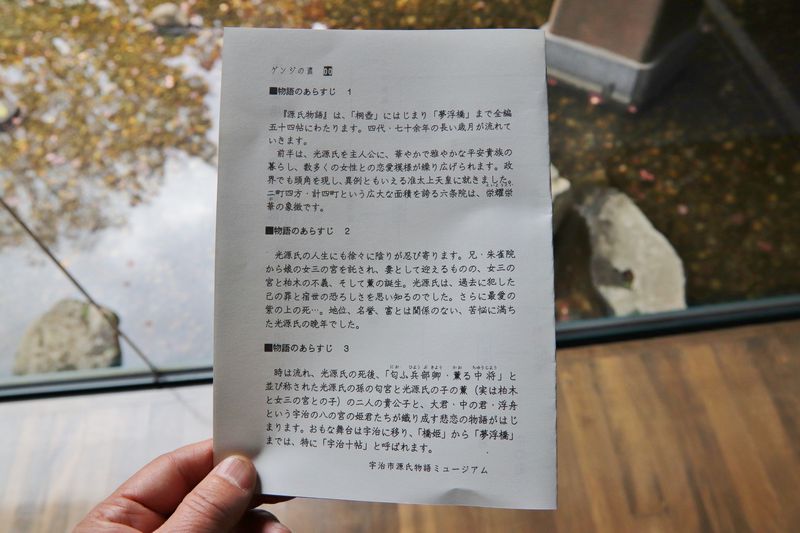 ゲンジの書 00
■物語のあらすじ 1
『源氏物語』は、「桐壺」にはじまり「夢浮橋」まで全編
五十四帖にわたります。四代・七十余年の長い歳月が流れて
いきます。
前半は、光源氏を主人公に、華やかで雅やかな平安貴族の
暮らし、数多くの女性との恋愛模様が繰り広げられます。政
界でも頭角を現し、異例ともいえる准太上天皇に就きました。
二町四方・計四町という広大な面積を誇る六条院は、栄耀栄
華の象徴です。
■物語のあらすじ 2
光源氏の人生にも徐々に陰りが忍び寄ります。兄・朱雀院
から娘の女三の宮を託され、妻として迎えるものの、女三の
宮と柏木の不義、そして薫の誕生。光源氏は、過去に犯した
己の罪と宿世の恐ろしさを思い知るのでした。さらに最愛の
紫の上の死…。地位、名誉、富とは関係のない、苦悩に満ち
た光源氏の晩年でした。
■物語のあらすじ 3
時は流れ、光源氏の死後、「匂ふ兵部卿・薫る中将」と
並び称された光源氏の孫の匂宮と光源氏の子の薫（実は柏木
と女三の宮との子）の二人の貴公子と、大君・中の君・浮舟
という宇治の八の宮の姫君たちが織り成す悲恋の物語がはじ
まります。おもな舞台は宇治に移り、「橋姫」から「夢浮橋」
までは、特に「宇治十帖」と呼ばれます。
宇治市源氏物語ミュージアム